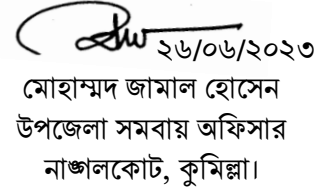 ২৬/০৬/২০২৩
মোহাম্মদ জামাল হোসেন
উপজেলা সমবায় অফিসার
নাঙ্গলকোট, কুমিল্লা।